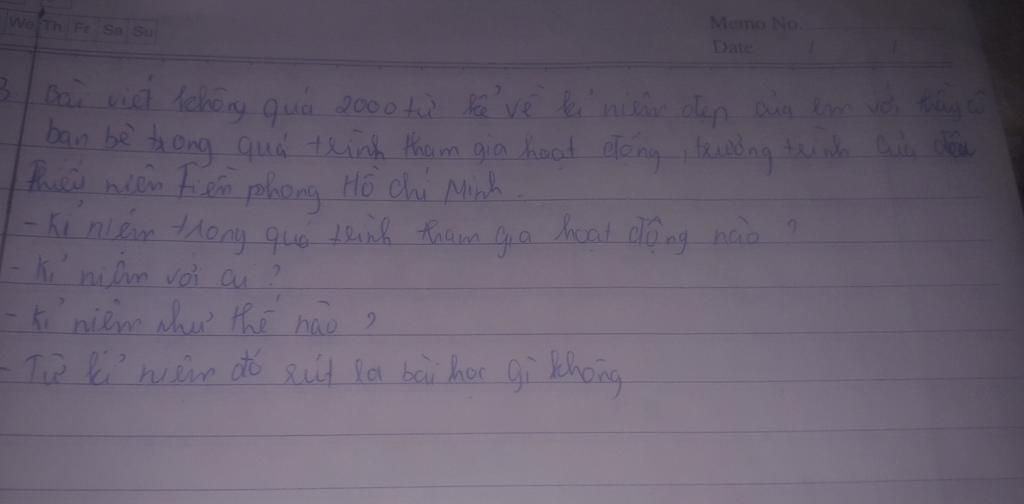 We Th Fr Sa Su
Memo No.
Date / /
3. Bài viết không quá 2000 từ kể về kỉ niệm đẹp của em với thầy cô
bạn bè trong quá trình tham gia hoạt động, trương trình của đội
Thiếu niên Tiền phong Hồ Chí Minh.
- Kỉ niệm trong quá trình tham gia hoạt động nào ?
- Kỉ niệm với ai ?
- Kỉ niệm như thế nào ?
- Từ kỉ niệm đó rút ra bài học gì không